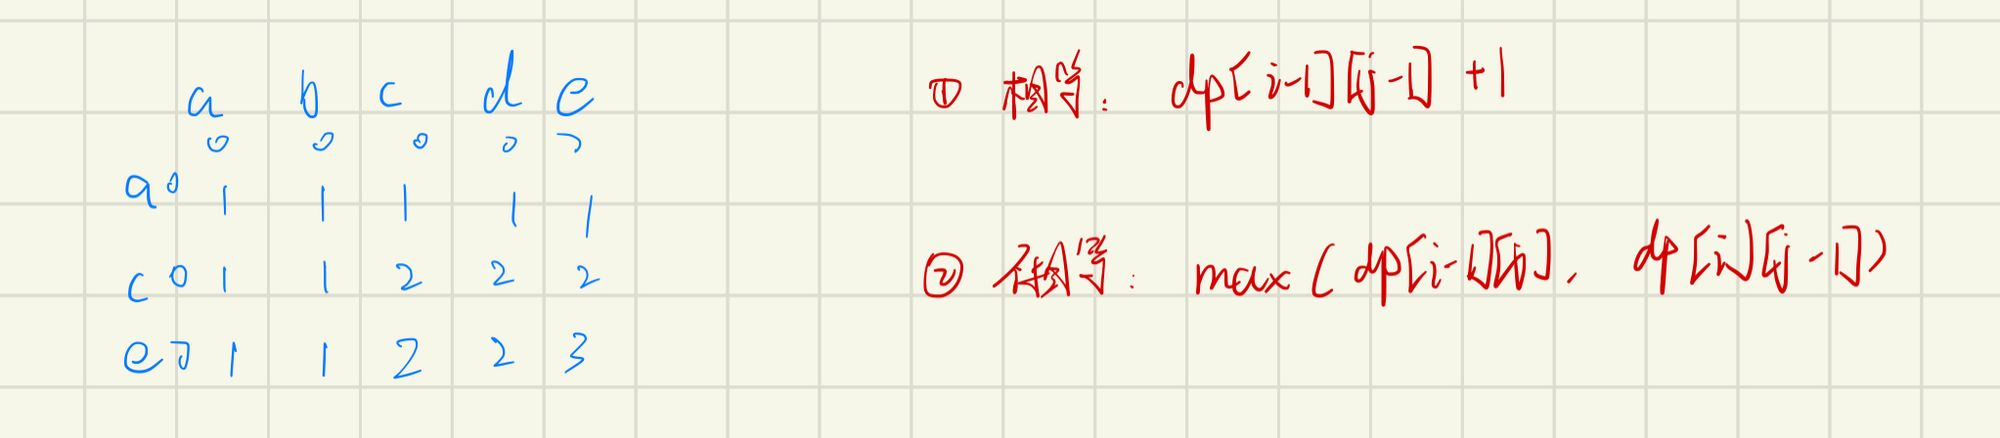 a b c d e
0 0 0 0 0
a 0 1 1 1 1 1
c 0 1 1 2 2 2
e 0 1 1 2 2 3
① 相等: dp[i-1][j-1] +1
② 不相等: max(dp[i-1][j], dp[i][j-1])